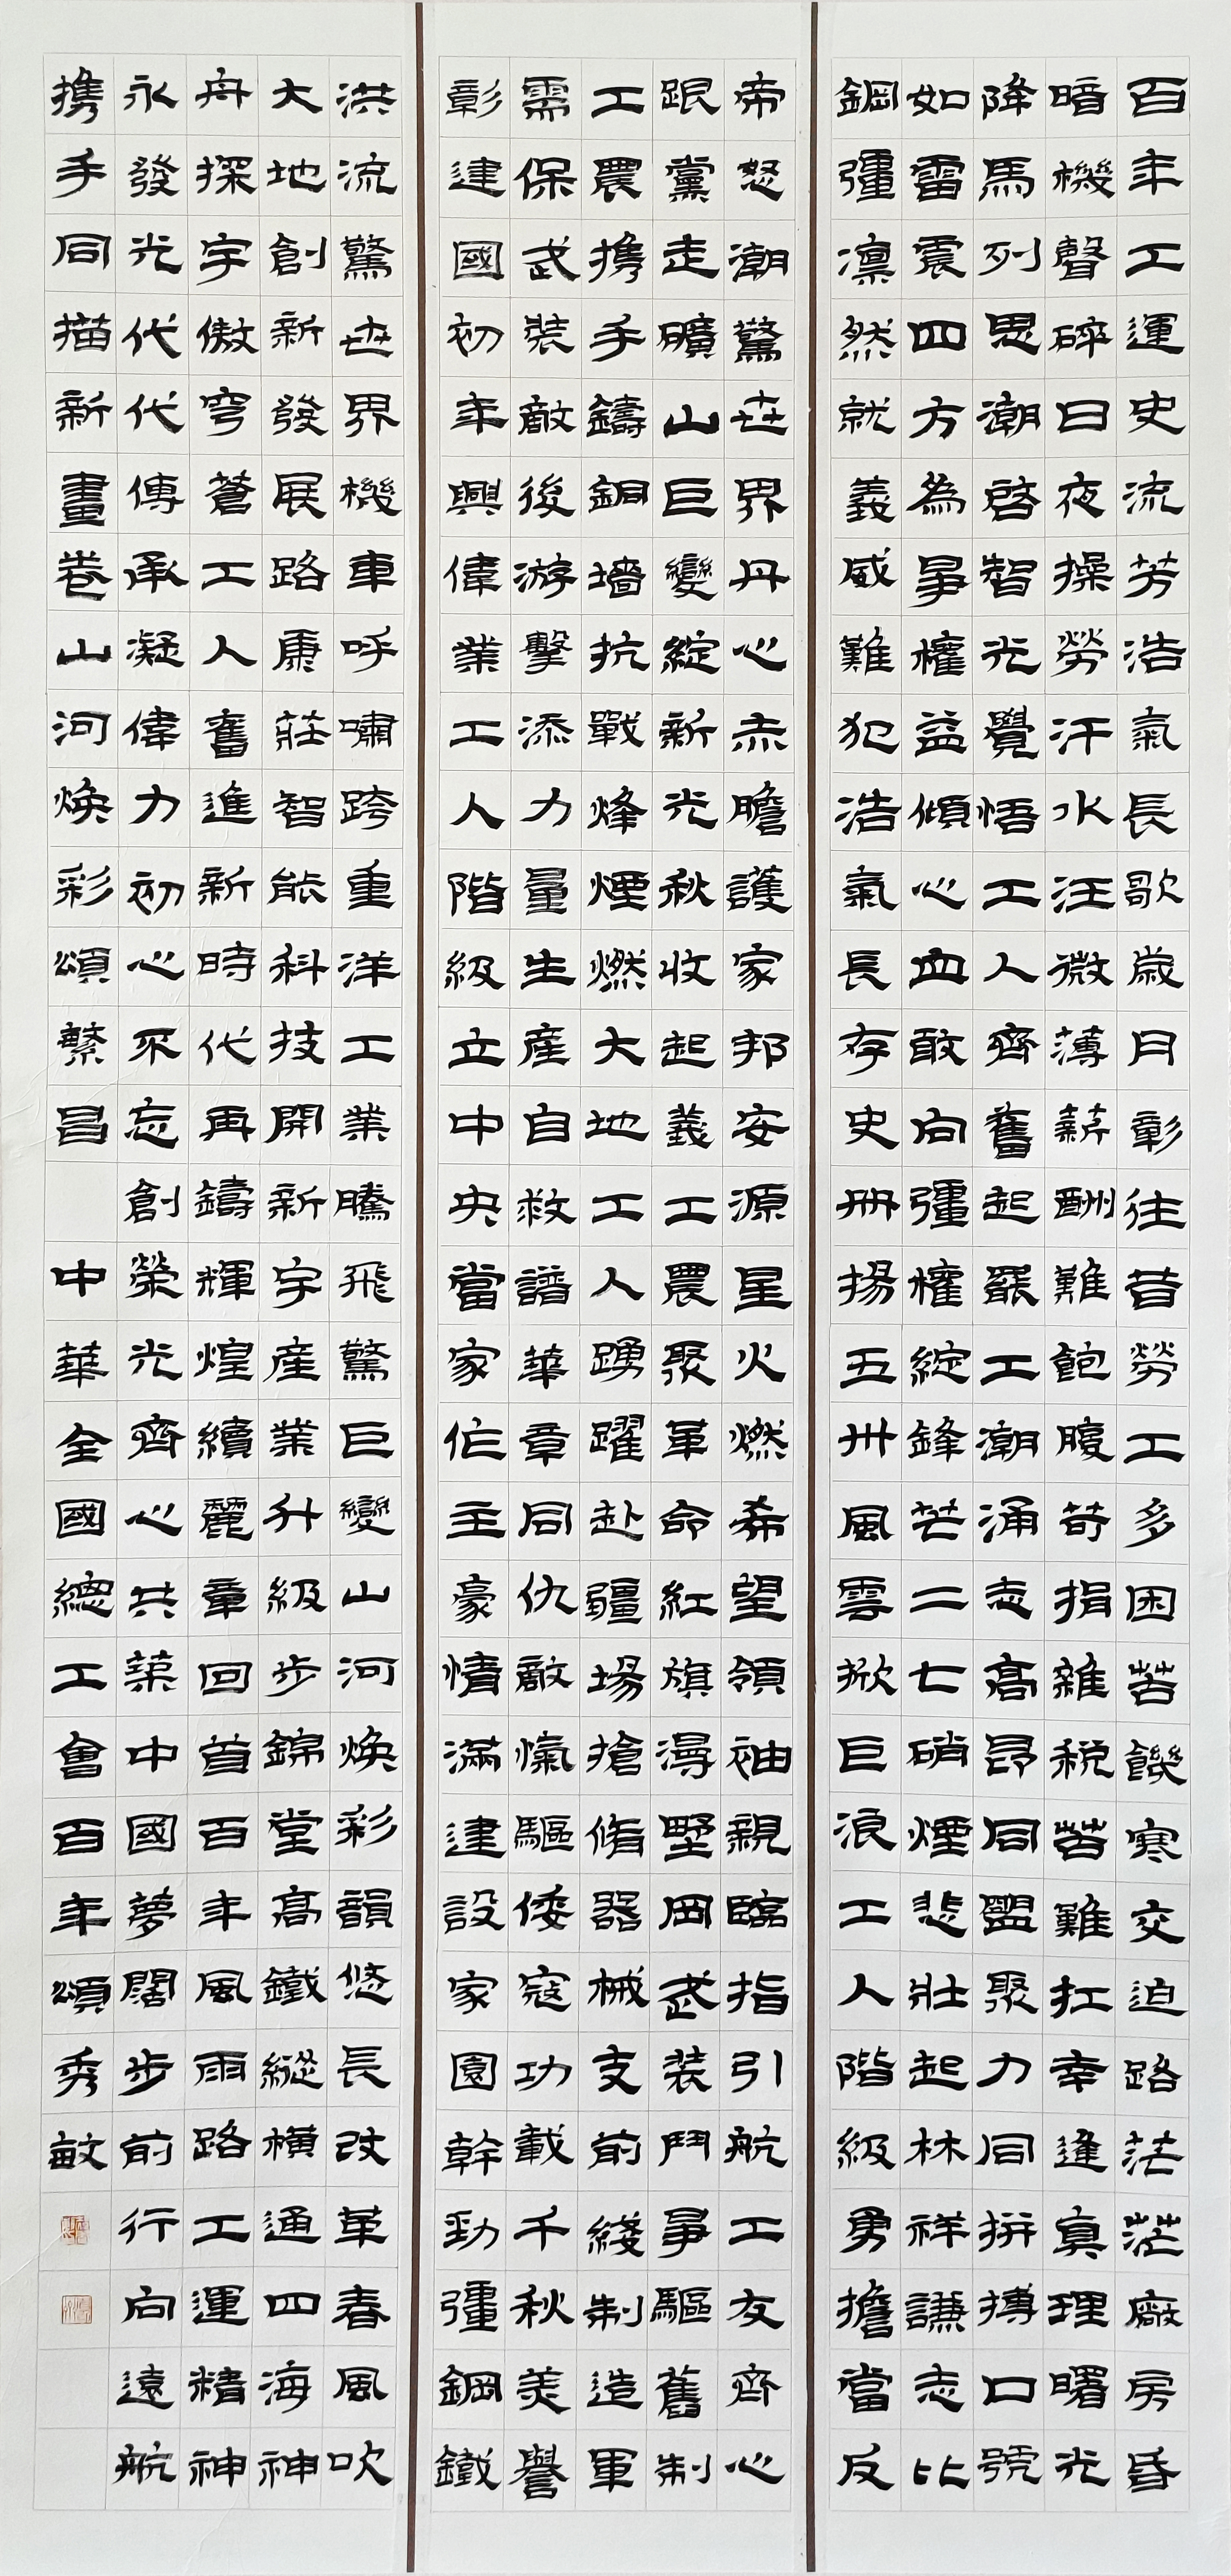 百年工運史流芳浩氣長歌歲月彰往昔勞工多困苦饑寒交迫路茫茫廠房昏
暗機聲碎日夜操勞汗水汪微薄薪酬難飽腹苛捐雜稅苦難扛幸逢真理曙光
降馬列思潮啓智光覺悟工人齊奮起罷工潮涌志高昂同盟聚力同拼搏口號
如雷震四方為爭權益傾心血敢向彊權綻鋒芒二七硝煙悲壯起林祥謙志比
鋼彊凛然就義威難犯浩氣長存史冊揚五卅風雲掀巨浪工人階級勇擔當反
帝怒潮驚世界丹心赤膽護家邦安源星火燃希望領袖親臨指引航工友齊心
跟黨走礦山巨變綻新光秋收起義工農聚革命紅旗漫野岡武裝鬥爭驅舊制
工農携手鑄銅墻抗戰烽煙燃大地工人踴躍赴疆場搶脩器械支前綫制造軍
需保武裝敵後游擊添力量生產自救譜華章同仇敵愾驅倭寇功載千秋美譽
彰建國初年興偉業工人階級立中央當家作主豪情滿建設家園幹勁彊鋼鐵
洪流驚世界機車呼嘯跨重洋工業騰飛驚巨變山河煥彩韻悠長改革春風吹
大地創新發展路康莊智能科技開新宇產業升級步錦堂高鐵縱橫通四海神
舟探宇傲穹蒼工人奮進新時代再鑄輝煌續麗章回首百年風雨路工運精神
永發光代代傳承凝偉力初心不忘創榮光齊心共築中國夢闊步前行向遠航
携手同描新畫卷山河煥彩頌繁昌 中華全國總工會百年頌秀敏